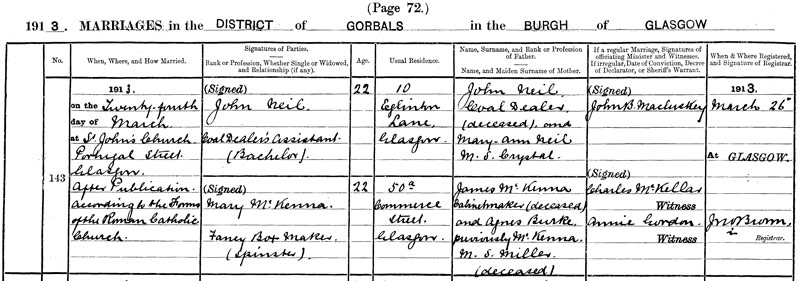 (Page 72.)
1913. MARRIAGES in the DISTRICT of GORBALS in the BURGH of GLASGOW
No.
When, Where, and How Married.
Signatures of Parties.
Rank or Profession, Whether Single or Widowed, and Relationship (if any).
Age.
Usual Residence.
Name, Surname, and Rank or Profession of Father.
Name, and Maiden Surname of Mother.
If a regular Marriage, Signatures of officiating Minister and Witnesses.
If irregular, Date of Conviction, Decree of Declarator, or Sheriff's Warrant.
When & Where Registered, and Signature of Registrar.
143
1913.
on the Twenty-fourth
day of March
at St John's Church
Portugal Street
Glasgow
After Publication
according to the Forms
of the Roman Catholic
Church.
(Signed)
John Neil
Coal Dealer's Assistant
(Bachelor)
22
10
Eglinton
Lane,
Glasgow
John Neil
Coal Dealer
(deceased), and
Mary-ann Neil
M. S. Crystal.
(Signed)
John B. Macluskey
1913.
March 26
At GLASGOW.
(Signed)
Mary McKenna
Fancy Box Maker,
(Spinster)
22
50a
Commerce
Street.
Glasgow.
James McKenna
Cabinetmaker (deceased)
and Agnes Burke,
previously McKenna
M. S. Miller.
(deceased)
(Signed)
Charles McKellar
Witness
Annie Gordon.
Witness
Jno Brown
Registrar.